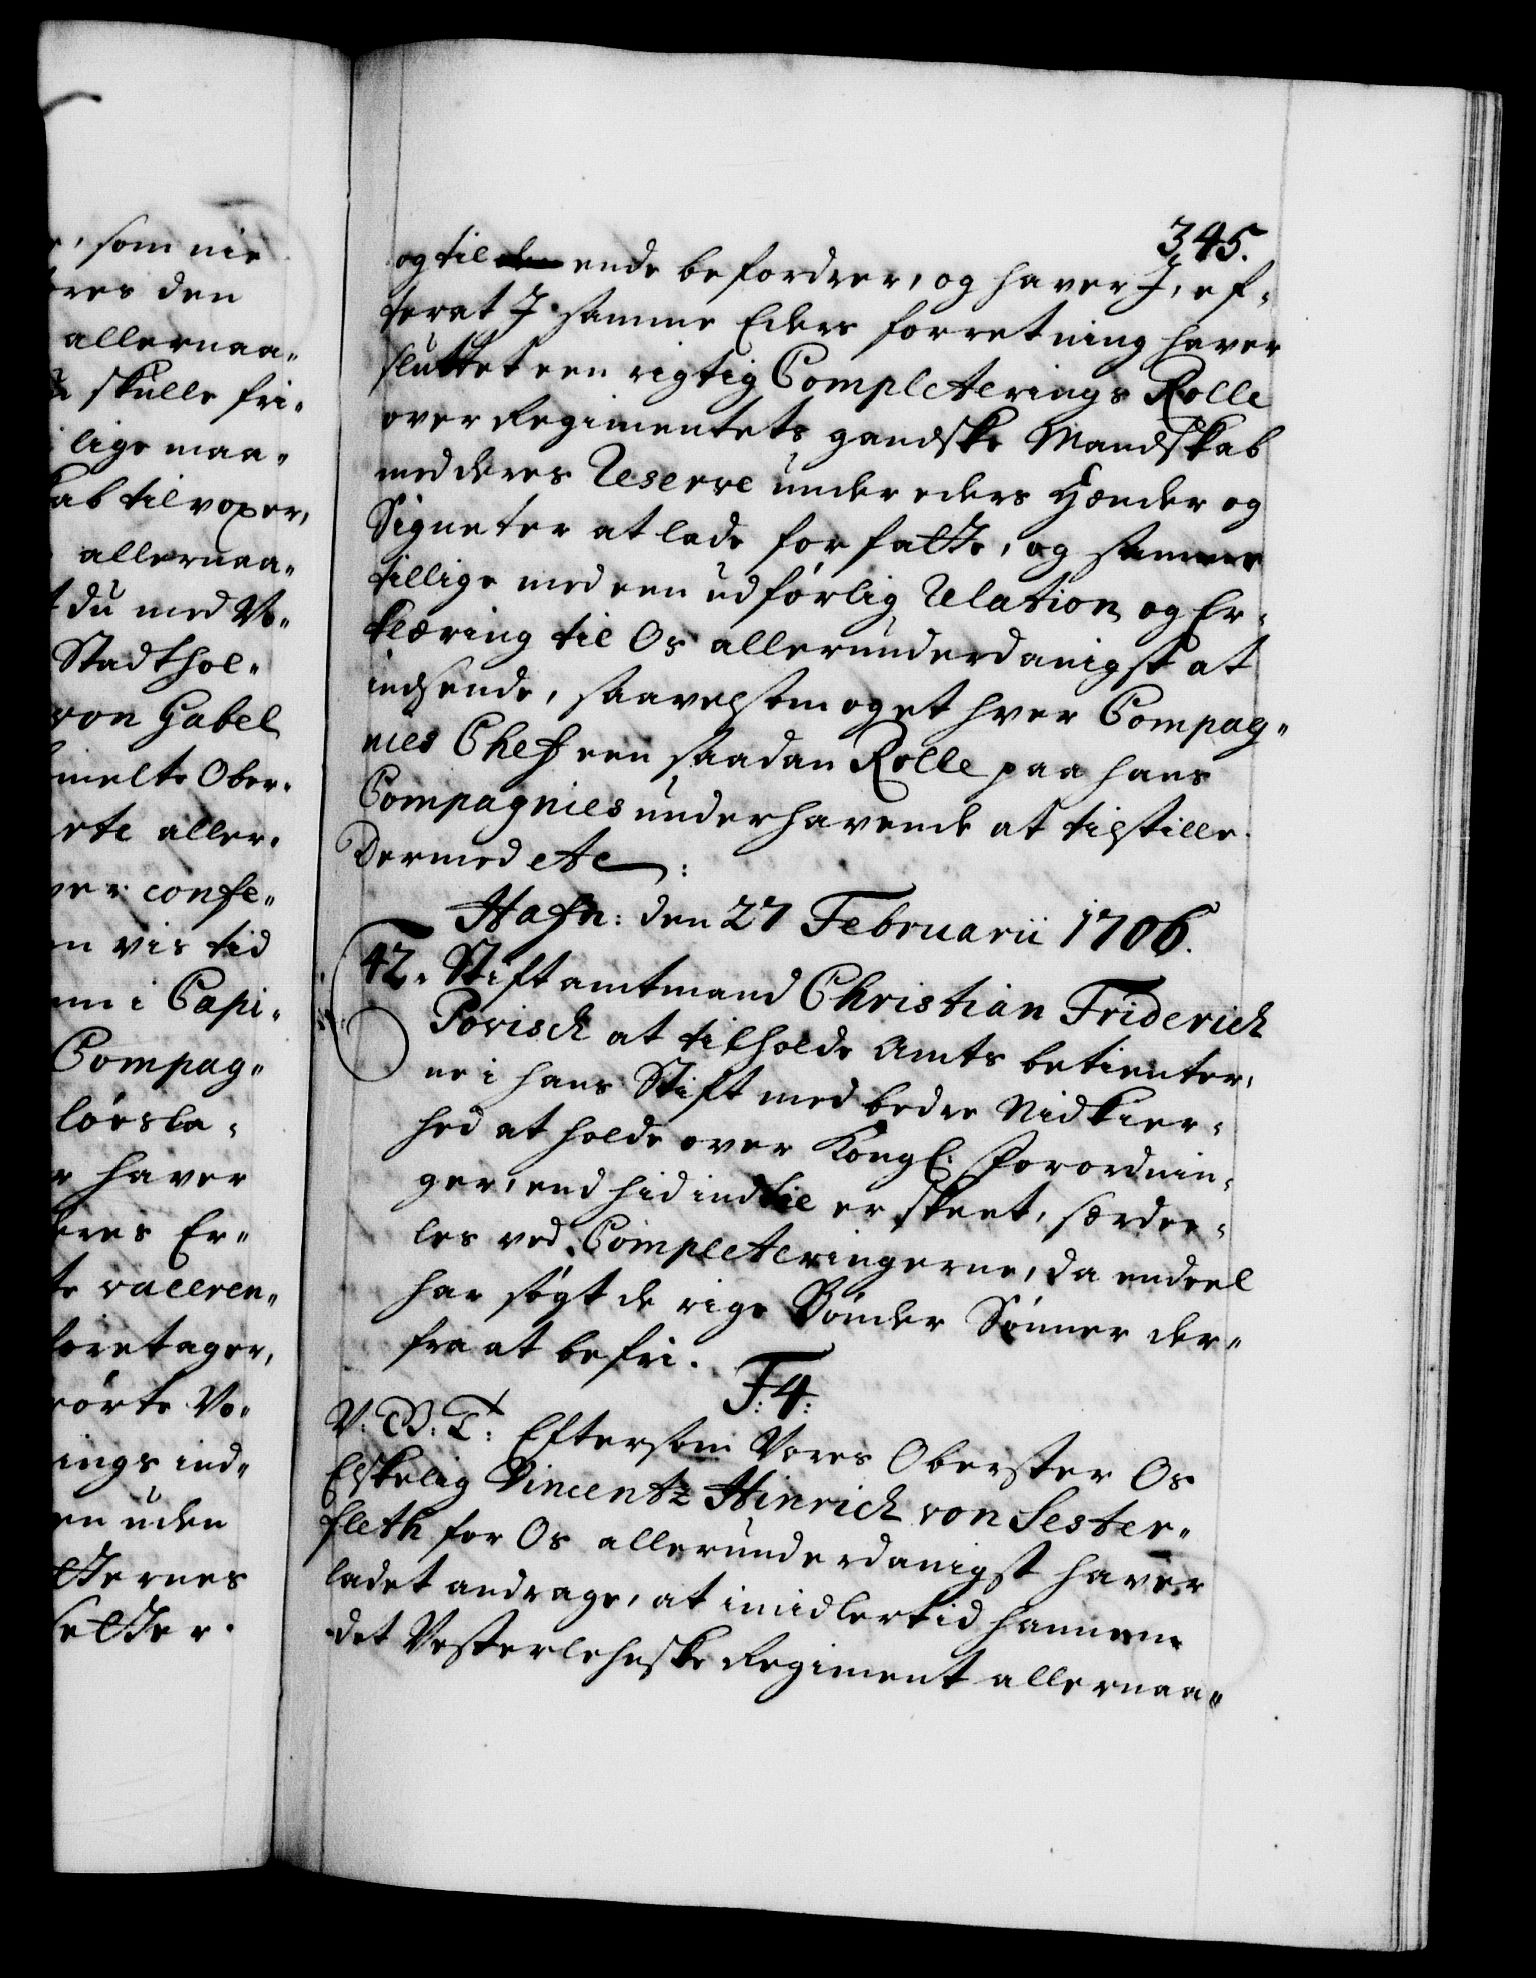 , som nie
res den
allernaa-
skulle fri-
lige maa-
ab tilvoxer,
allernaa-
du med Vo-
Stadthol-
von Gabel
melte Ober-
rte aller-
ver confe-
n vis tid
nn i Capi-
Compag-
lösla-
r haver
eres Er-
te vaceren-
foretager,
rörte Vo-
ings ind-
en uden
tternes
setter.
345.
og til ende befordrer, og haver I, ef-
terat I samme Eders forretning haver
sluttet een rigtig Completerings Rolle
over Regimentets gandske Mandskab
med deres Reserve under eders Hænder og
Signeter at lade forfatte, og samme
tillige med een udførlig Relation og Er-
klæring til Os allerunderdanigst at
indsende, saavelsom og et hver Compag-
nies Chef een saadan Rolle paa hans
Compagnies underhavende at tilstille.
Dermed etc:
Hafn: den 27 Februarii 1706.
42. Stiftamtmand Christian Friderich
Povisch at tilholde Amts betienter-
ne i hans Stift med bedre Nidkier-
hed at holde over Kongl: Forordnin-
ger, end hid indtil er skeet, særdee-
les ved Completeringerne, da endeel
har søgt de rige Bønder Sønner der-
fra at befri.
F: 4:
V: G: T: Eftersom Vores Oberster Os
Elskelig Vincentz Hinrich von Sester-
fleth for Os allerunderdanigst haver
ladet andrage, at imidlertid hannem
det Vesterlehnske Regiment allernaa-